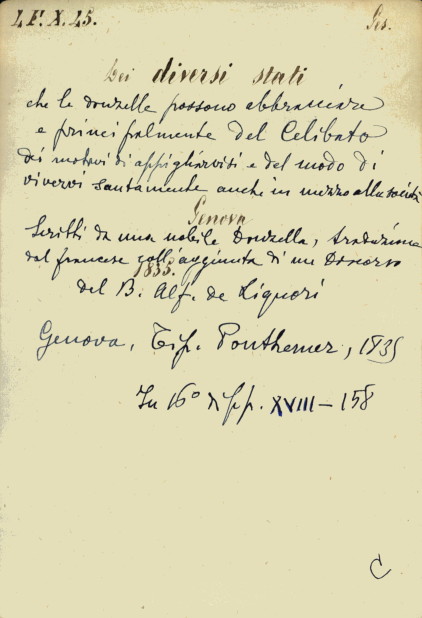 I F. X. 15. Ges.
Dei diversi stati
che le donzelle possono abbracciare
e principalmente del Celibato
dei motivi di appigliarvisi e del modo di
vivervi santamente anche in mezzo alla società
Genova
Scritti da una nobile Donzella, traduzione
dal francese coll'aggiunta di un Discorso
1835.
del B. Alf. de Liguori
Genova, Tip. Ponthenier, 1835
In 16° di pp. XVIII - 158
C